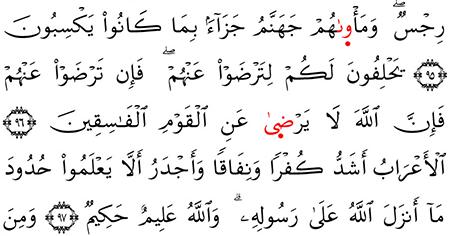 رِجۡسٞۖ وَمَأۡوىٰهُمۡ جَهَنَّمُ جَزَآءَۢ بِمَا كَانُواْ يَكۡسِبُونَ
٩٥ يَحۡلِفُونَ لَكُمۡ لِتَرۡضَوۡاْ عَنۡهُمۡۖ فَإِن تَرۡضَوۡاْ عَنۡهُمۡ
فَإِنَّ ٱللَّهَ لَا يَرۡضىٰ عَنِ ٱلۡقَوۡمِ ٱلۡفَٰسِقِينَ ٩٦
ٱلۡأَعۡرَابُ أَشَدُّ كُفۡرٗا وَنِفَاقٗا وَأَجۡدَرُ أَلَّا يَعۡلَمُواْ حُدُودَ
مَآ أَنزَلَ ٱللَّهُ عَلَىٰ رَسُولِهِۦۗ وَٱللَّهُ عَلِيمٌ حَكِيمٞ ٩٧ وَمِنَ